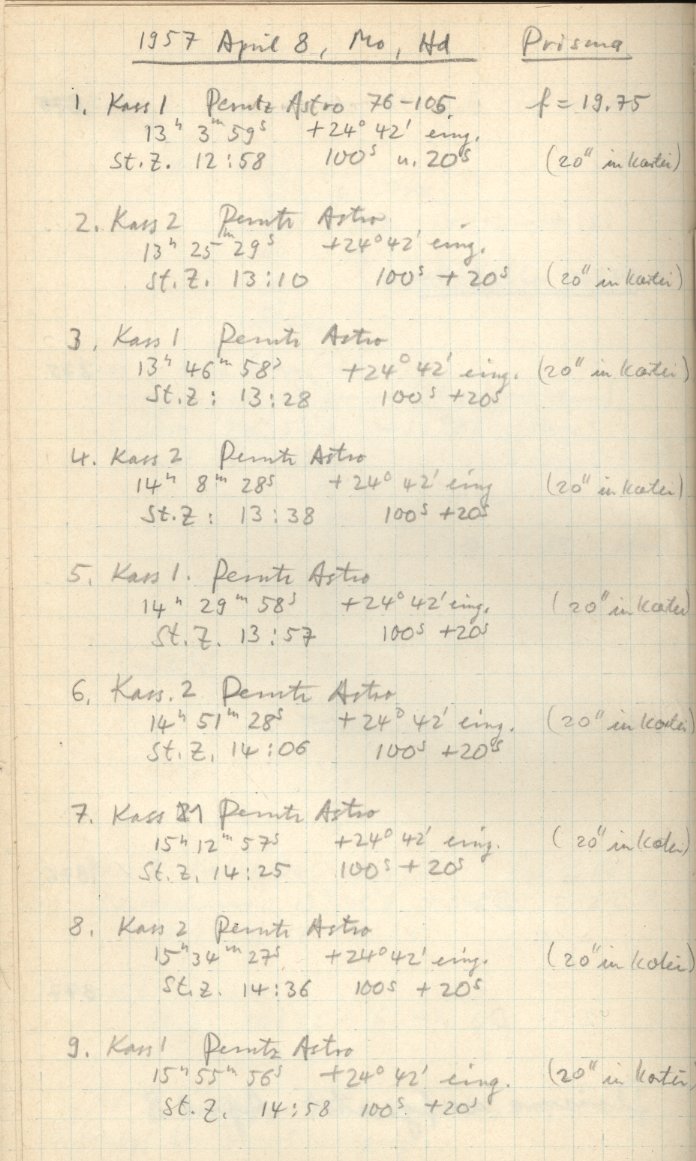 1957 April 8, Mo, Hd Prisma
1. Kass 1 Perutz Astro 76-105 f = 19.75
13h 3m 59s +24° 42' eing.
St.Z. 12:58 100s u. 20s (20" in Kartei)
2. Kass 2 Perutz Astro
13h 25m 29s +24° 42' eing.
St.Z. 13:10 100s + 20s (20" in Kartei)
3. Kass 1 Perutz Astro
13h 46m 58s +24° 42' eing. (20" in Kartei)
St.Z: 13:28 100s +20s
4. Kass 2 Perutz Astro
14h 8m 28s +24° 42' eing (20" in Kartei)
St.Z: 13:38 100s +20s
5. Kass 1. Perutz Astro
14h 29m 58s +24° 42' eing. (20" in Kartei)
St.Z. 13:57 100s +20s
6. Kass. 2 Perutz Astro
14h 51m 28s +24° 42' eing. (20" in Kartei)
St.Z. 14:06 100s +20s
7. Kass 1 Perutz Astro
15h 12m 57s +24° 42' eing. (20" in Kartei)
St.Z. 14:25 100s + 20s
8. Kass 2 Perutz Astro
15h 34m 27s +24° 42' eing. (20" in Kartei)
St.Z. 14:36 100s + 20s
9. Kass 1 Perutz Astro
15h 55m 56s +24° 42' eing. (20" in Kartei)
St.Z. 14:58 100s. +20s